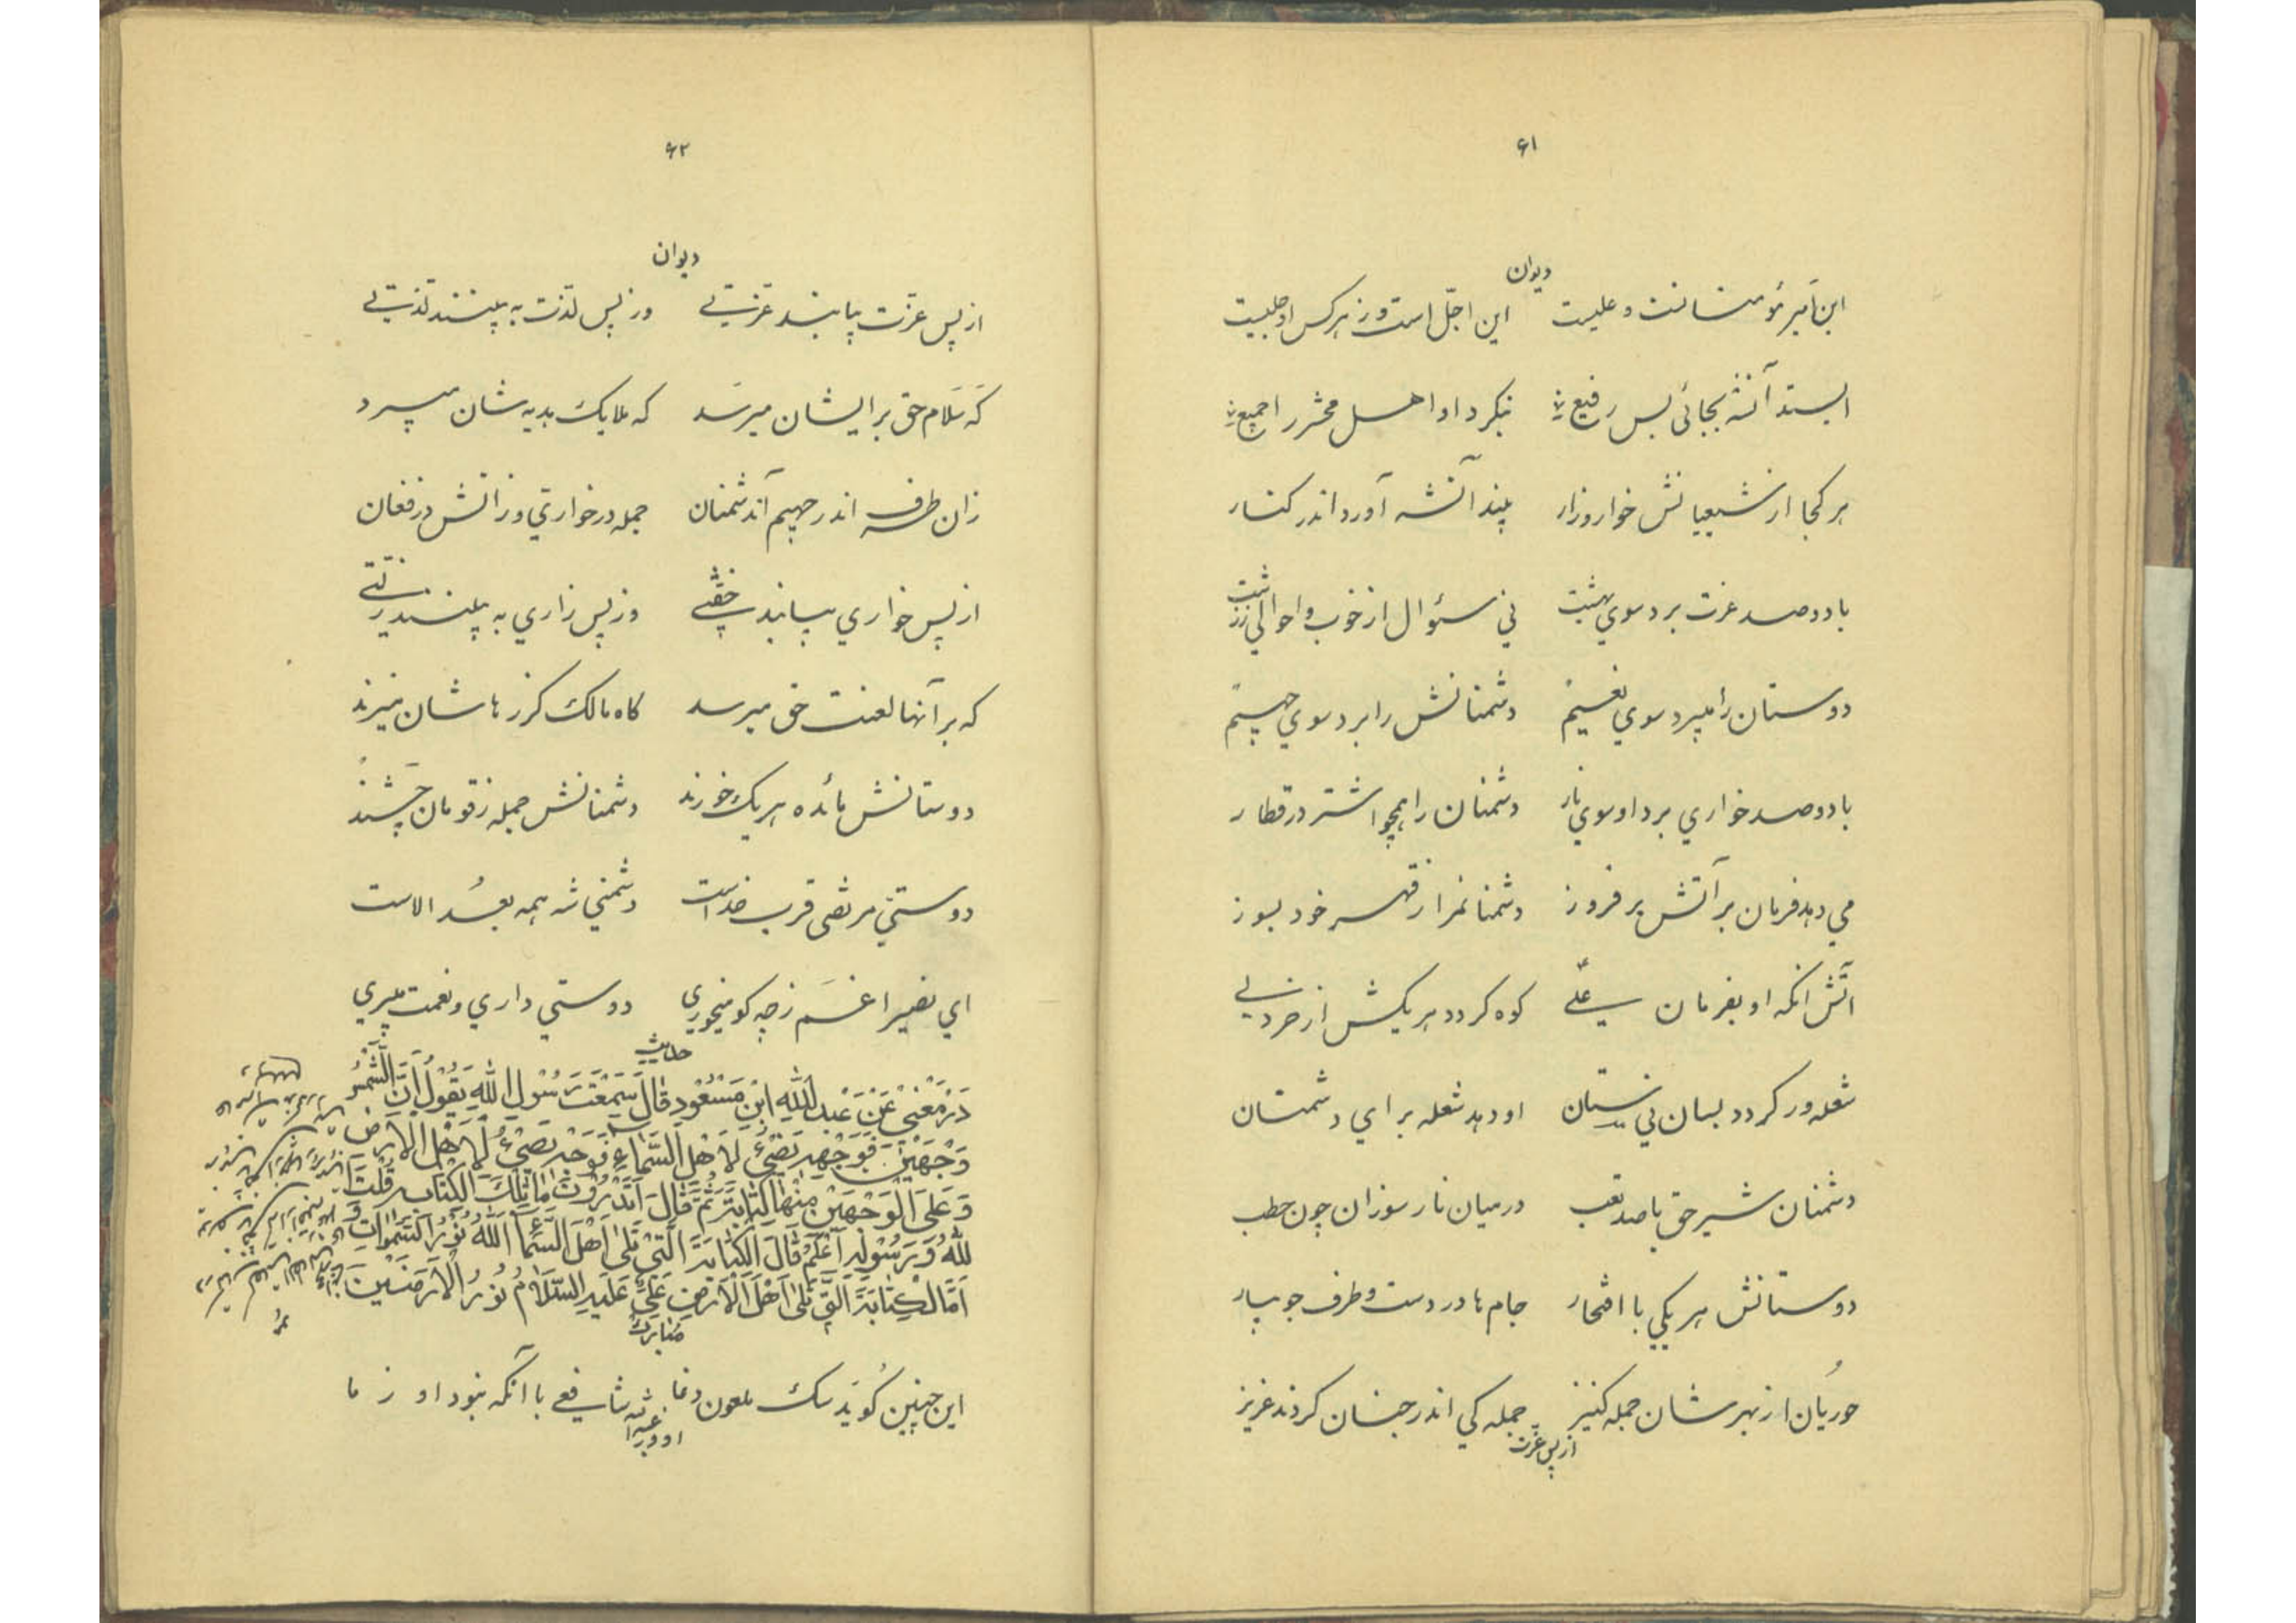 ۶۱
دیوان
این امیر مؤمنانست و علیست این اجلّ است و ز هر کس او جلیست
ایستد آنشه بجائی بس رفیع بنگرد او اهل محشر را جمیع
هر کجا از شیعیانش خوار و زار بیند آنشه آورد اندر کنار
با دو صد عزت برد سوي بهشت ني سئوال از خوب و احوالي ز زشت
دوستان را میبرد سوي نعیم دشمنانش را برد سوي جحیم
با دو صد خواري برد او سوي نار دشمنان را همچو اشتر در قطار
مي دهد فرمان بر آتش بر فروز دشمنانم را ز قهر خود بسوز
آتش آنکه او بفرمان علے کوه کردد هر یکیش از خردلے
شعله ور کردد بسان نیستان او دهد شعله براي دشمنان
دشمنان شیر حق با صد تعب در میان نار سوزان چون حطب
دوستانش هر یکي با افتخار جام ها در دست و طرف جویبار
حوریان از بهر شان جمله کنیز جمله کي اندر جنان کردند عزیز
از پس عزت
۶۲
دیوان
از پس عزت بیابند عزتے وز پس لذت به بینند لذتے
که سلام حق بر ایشان میرسد که ملایک هدیه شان میبرد
زان طرف اندر جهیم آندشمنان جمله در خواري و ز آتش در فغان
از پس خواري بیابند خفتے وز پس زاري به بینند زلتے
که بر آنها لعنت حق میرسد کاه مالک کرز ها شان میزند
دوستانش مائده هر یک خورند دشمنانش جمله زقومان چشند
دوستي مرتضی قرب خداست دشمني شه همه بعد الاست
اي نصیرا غم ز چه کو میخوري دوستي داري و نعمت میبري
حدیث
در معنی عن عبد الله ابن مسعود قال سمعت رسول الله یقول ان الشمس
وجهین فوجهه تضیء لاهل السماء فوجه تضیء لاهل الارض
و علی الوجهین منها کتابة ثم قال اتدرون ما تلک الکتابه قلت
لله و رسوله اعلم قال الکتابة التی تلی اهل السماء الله نور السموات و
اما الکتابة التی تلی اهل الارض علی علیه السلام نور الارضین
این چنین کوید سک ملعون دغا شافعے با آنکه نبود او ز ما